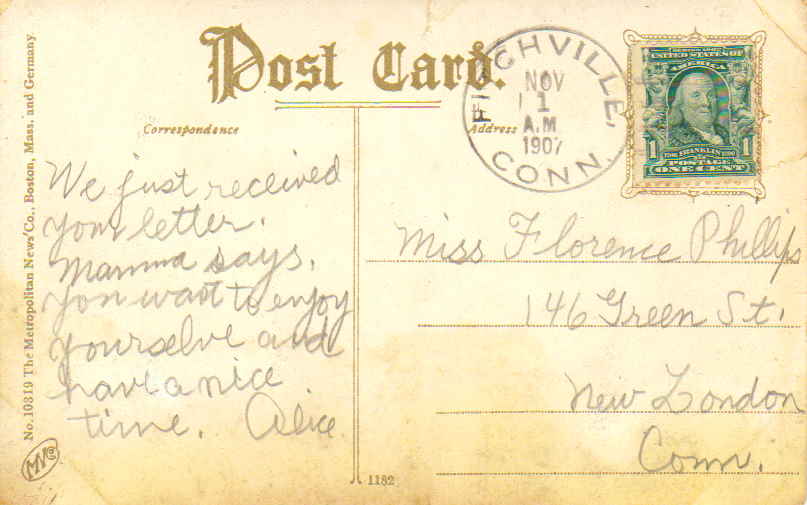 Post Card.
Correspondence
Address
FITCHVILLE,
NOV
1
A.M.
1907
CONN.
UNITED STATES OF
AMERICA
1 FRANKLIN 1
POSTAGE
ONE CENT
We just received
your letter.
Mamma says,
you want to enjoy
yourselve and
have a nice
time. Alice
Miss Florence Phillips
146 Green St.
New London
Conn.
No. 10319 The Metropolitan News Co., Boston, Mass. and Germany
MNCo
1182